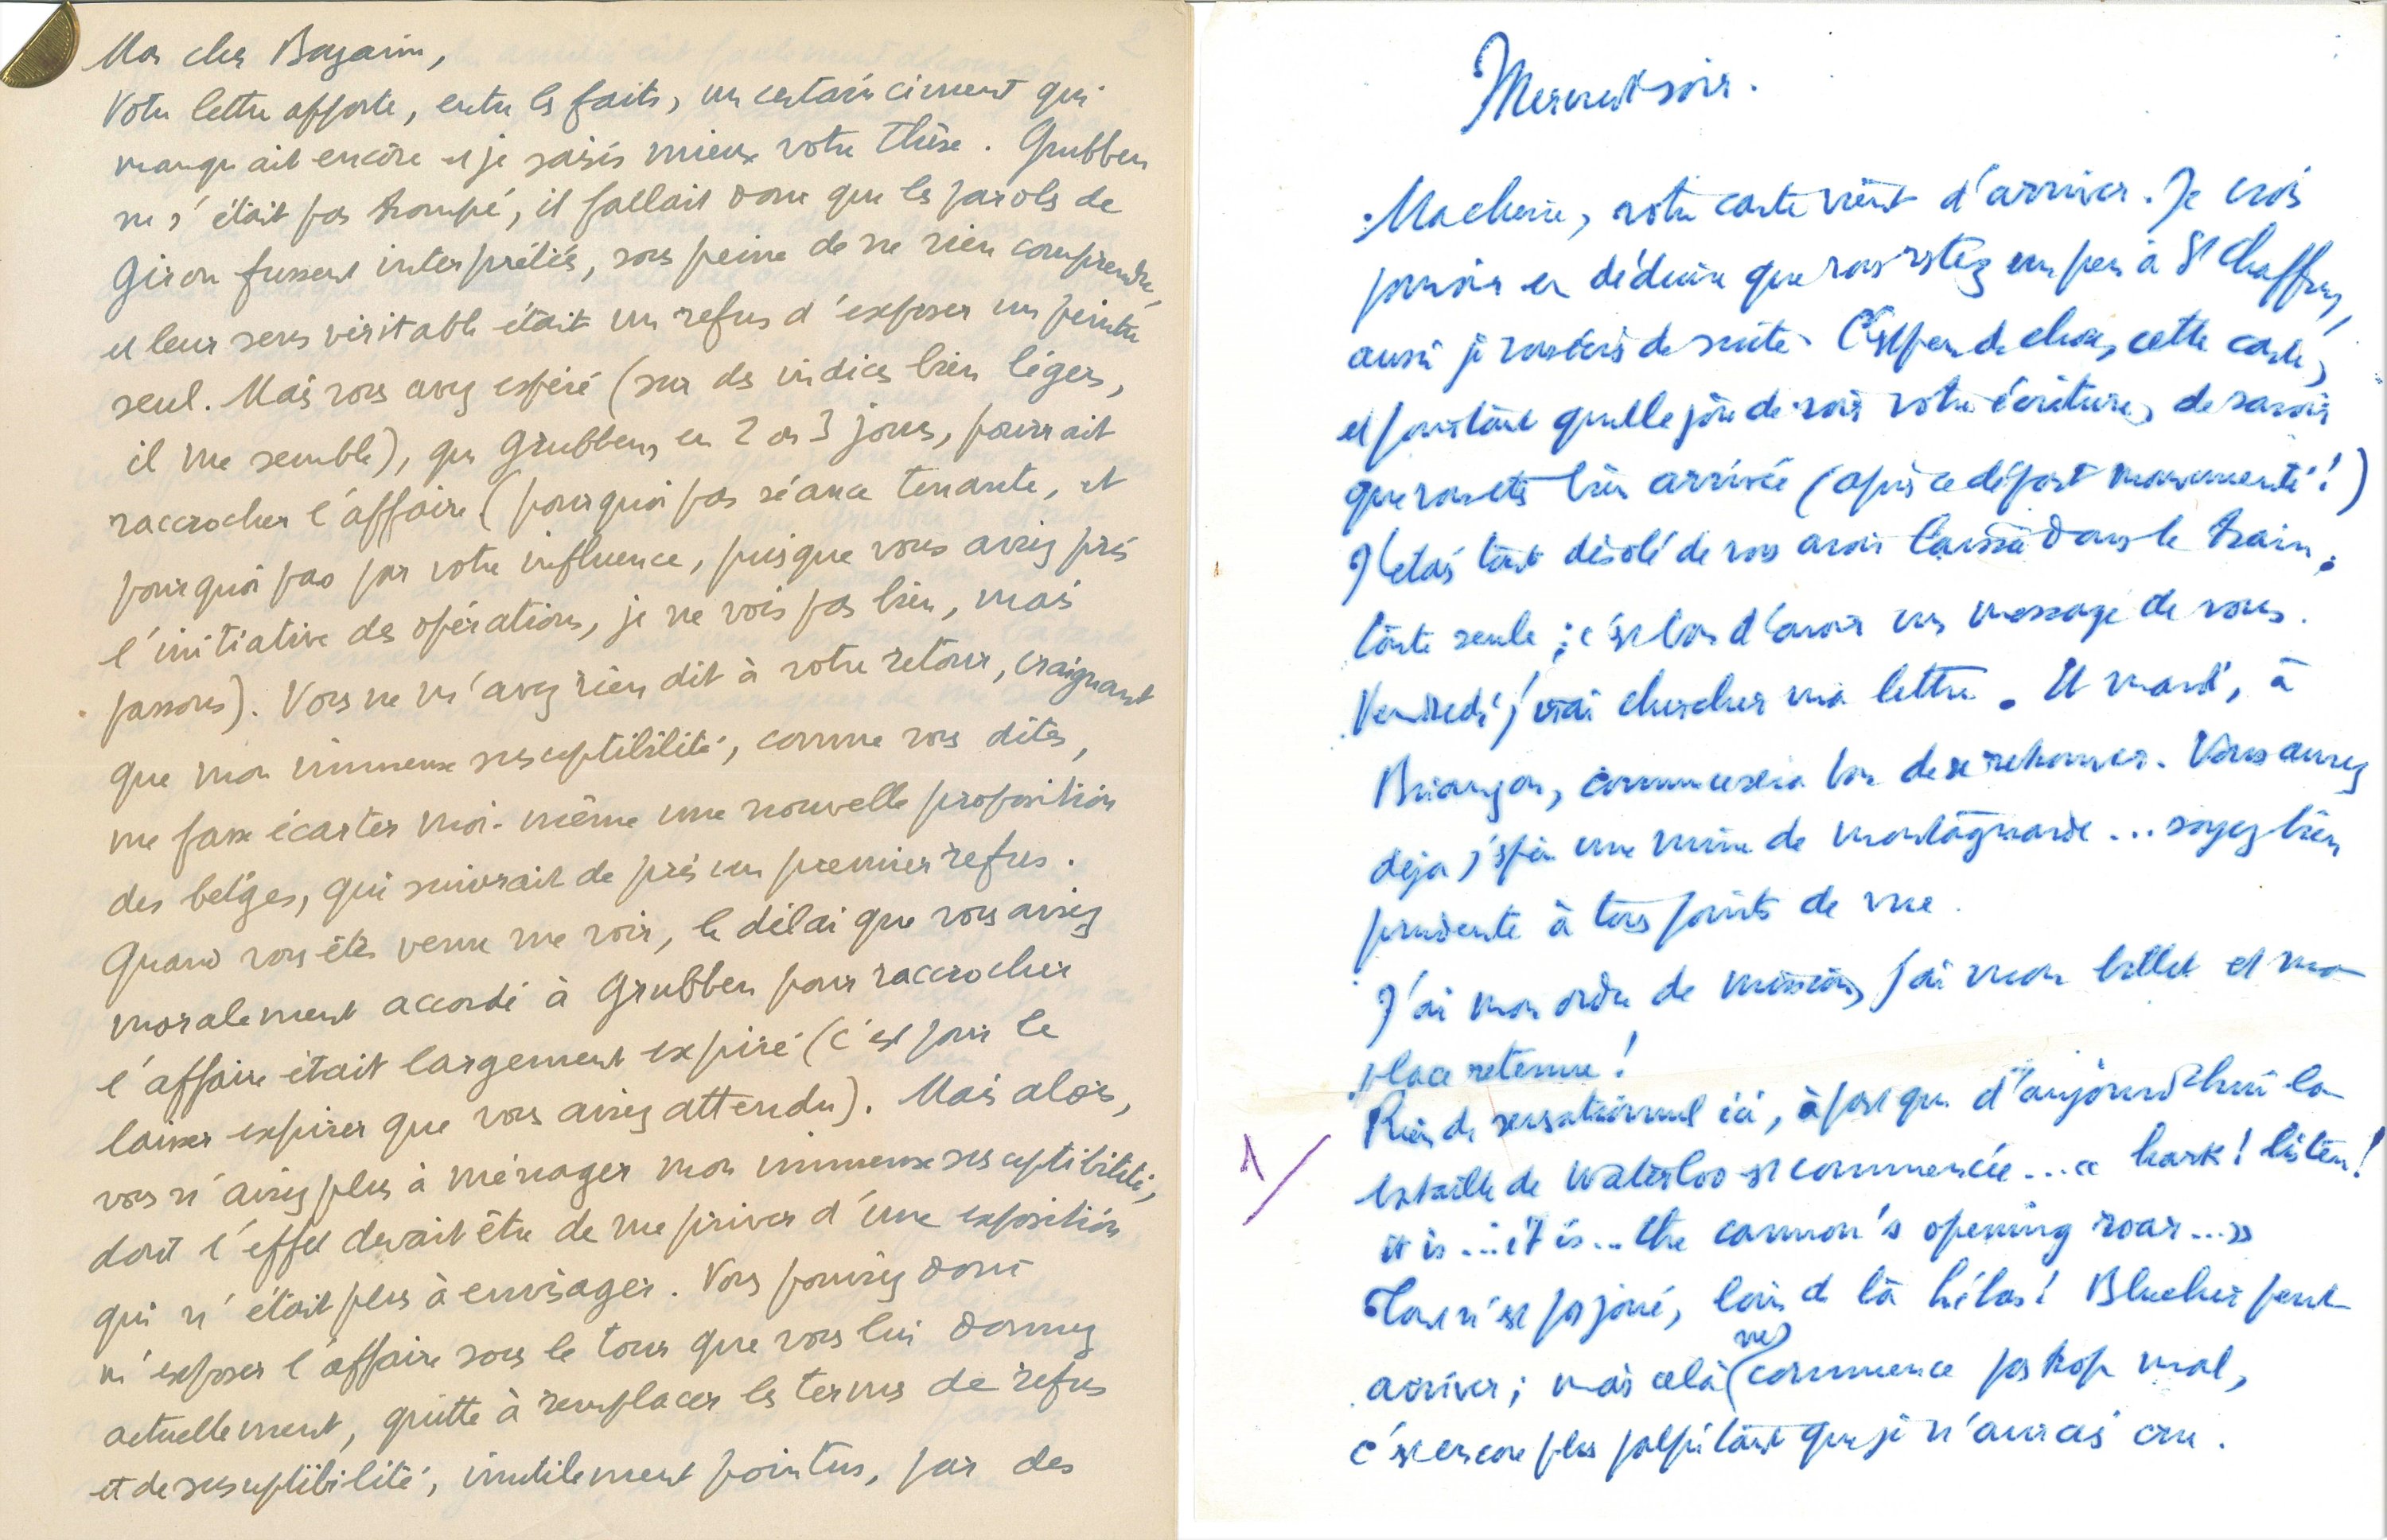 Mon cher Bazaine,
Votre lettre apporte, entre les faits, un certain ciment qui
manquait encore et je saisis mieux votre thèse. Grubben
ne s'était pas trompé, il fallait donc que les paroles de
Giron fussent interprétées, sous peine de ne rien comprendre,
et leur sens véritable était un refus d'exposer un peintre
seul. Mais vous avez espéré (sur des indices bien légers,
il me semble), que Grubben, en 2 ou 3 jours, pourrait
raccrocher l'affaire (pourquoi pas séance tenante, et
pourquoi pas par votre influence, puisque vous aviez pris
l'initiative des opérations, je ne vois pas bien, mais
passons). Vous ne m'avez rien dit à votre retour, craignant
que mon immense susceptibilité, comme vous dites,
me fasse écarter moi-même une nouvelle proposition
des belges, qui suivrait de près un premier refus.
Quand vous êtes venu me voir, le délai que vous aviez
moralement accordé à Grubben pour raccrocher
l'affaire était largement expiré (c'est pour le
laisser expirer que vous aviez attendu). Mais alors,
vous n'aviez plus à ménager mon immense susceptibilité,
dont l'effet devait être de me priver d'une exposition
qui n'était plus à envisager. Vous pouviez donc
m'exposer l'affaire sous le tour que vous lui donnez
actuellement, quitte à remplacer les termes de refus
et de susceptibilité, inutilement pointus, par des
2
Mercredi soir.
Ma cherie, votre carte vient d'arriver. Je crois
pouvoir en déduire que vous restez un peu à St Chaffrey,
aussi je vous écris de suite. C'est peu de chose, cette carte,
et pourtant quelle joie de voir votre écriture, de savoir
que vous êtes bien arrivée (après ce départ mouvementé!)
J'étais tout désolé de vous avoir laissée dans le train,
toute seule ; c'est bon d'avoir un message de vous.
Vendredi j'irai chercher ma lettre. Et mardi, à
Briançon, comme ce sera bon de se retrouver. Vous aurez
déja j'espère une mine de montagnarde... soyez bien
prudente à tous points de vue.
J'ai mon ordre de mission, j'ai mon billet et ma
place retenue!
Rien de sensationnel ici, à part que d'aujourd'hui la
bataille de Waterloo est commencée... « hark! listen!
it is... it is... the cannon's opening roar... »
Tout n'est pas joué, loin de là hélas! Blucher peut
arriver ; mais celà ne commence pas trop mal,
c'est encore plus palpitant que je n'aurais cru.
1/